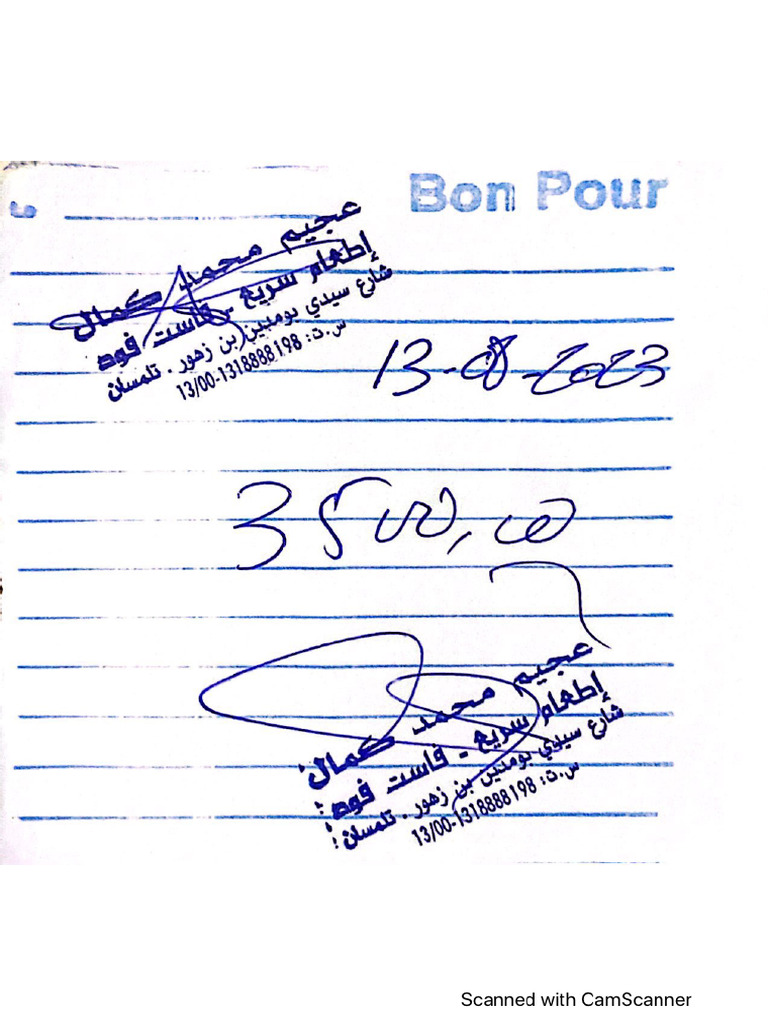 Bon Pour
عجيم محمد كمال
إطعام سريع - فاست فود
شارع سيدي بومدين بن زهور . تلمسان
س.ت: 13/00-1318888198
13-08-2023
3500,00
عجيم محمد كمال
إطعام سريع - فاست فود
شارع سيدي بومدين بن زهور . تلمسان
س.ت: 13/00-1318888198
Scanned with CamScanner